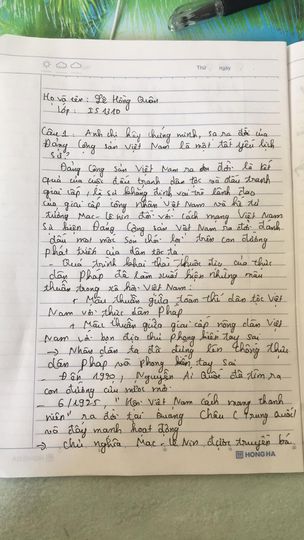 Thứ ngày
Họ và tên: Lê Hồng Quân
Lớp: IS1310
Câu 1: Anh chị hãy chứng minh, sự ra đời của
Đảng Cộng sản Việt Nam là một tất yếu lịch
sử?
Đảng Cộng sản Việt Nam ra đời là kết
quả của cuộc đấu tranh dân tộc và đấu tranh
giai cấp, là sự khẳng định vai trò lãnh đạo
của giai cấp công nhân Việt Nam và hệ tư
tưởng Mac-Lênin đối với cách mạng Việt Nam
Sự kiện Đảng Cộng sản Việt Nam ra đời đánh
dấu một mốc son chói lọi trên con đường
phát triển của dân tộc ta.
- Quá trình khai thác thuộc địa của thực
dân Pháp đã làm xuất hiện những mâu
thuẫn trong xã hội Việt Nam:
+ Mâu thuẫn giữa toàn thể dân tộc Việt
Nam với thực dân Pháp
+ Mâu thuẫn giữa giai cấp nông dân Việt
Nam với bọn địa chủ phong kiến tay sai
→ Nhân dân ta đã đứng lên chống thực
dân Pháp và phong kiến tay sai
- Đến 1920, Nguyễn Ái Quốc đã tìm ra
con đường cứu nước mới.
- 6/1925, "Hội Việt Nam cách mạng thanh
niên" ra đời tại Quảng Châu (Trung Quốc)
và đẩy mạnh hoạt động
→ Chủ nghĩa Mac-Lê Nin được truyền bá
HONG HA